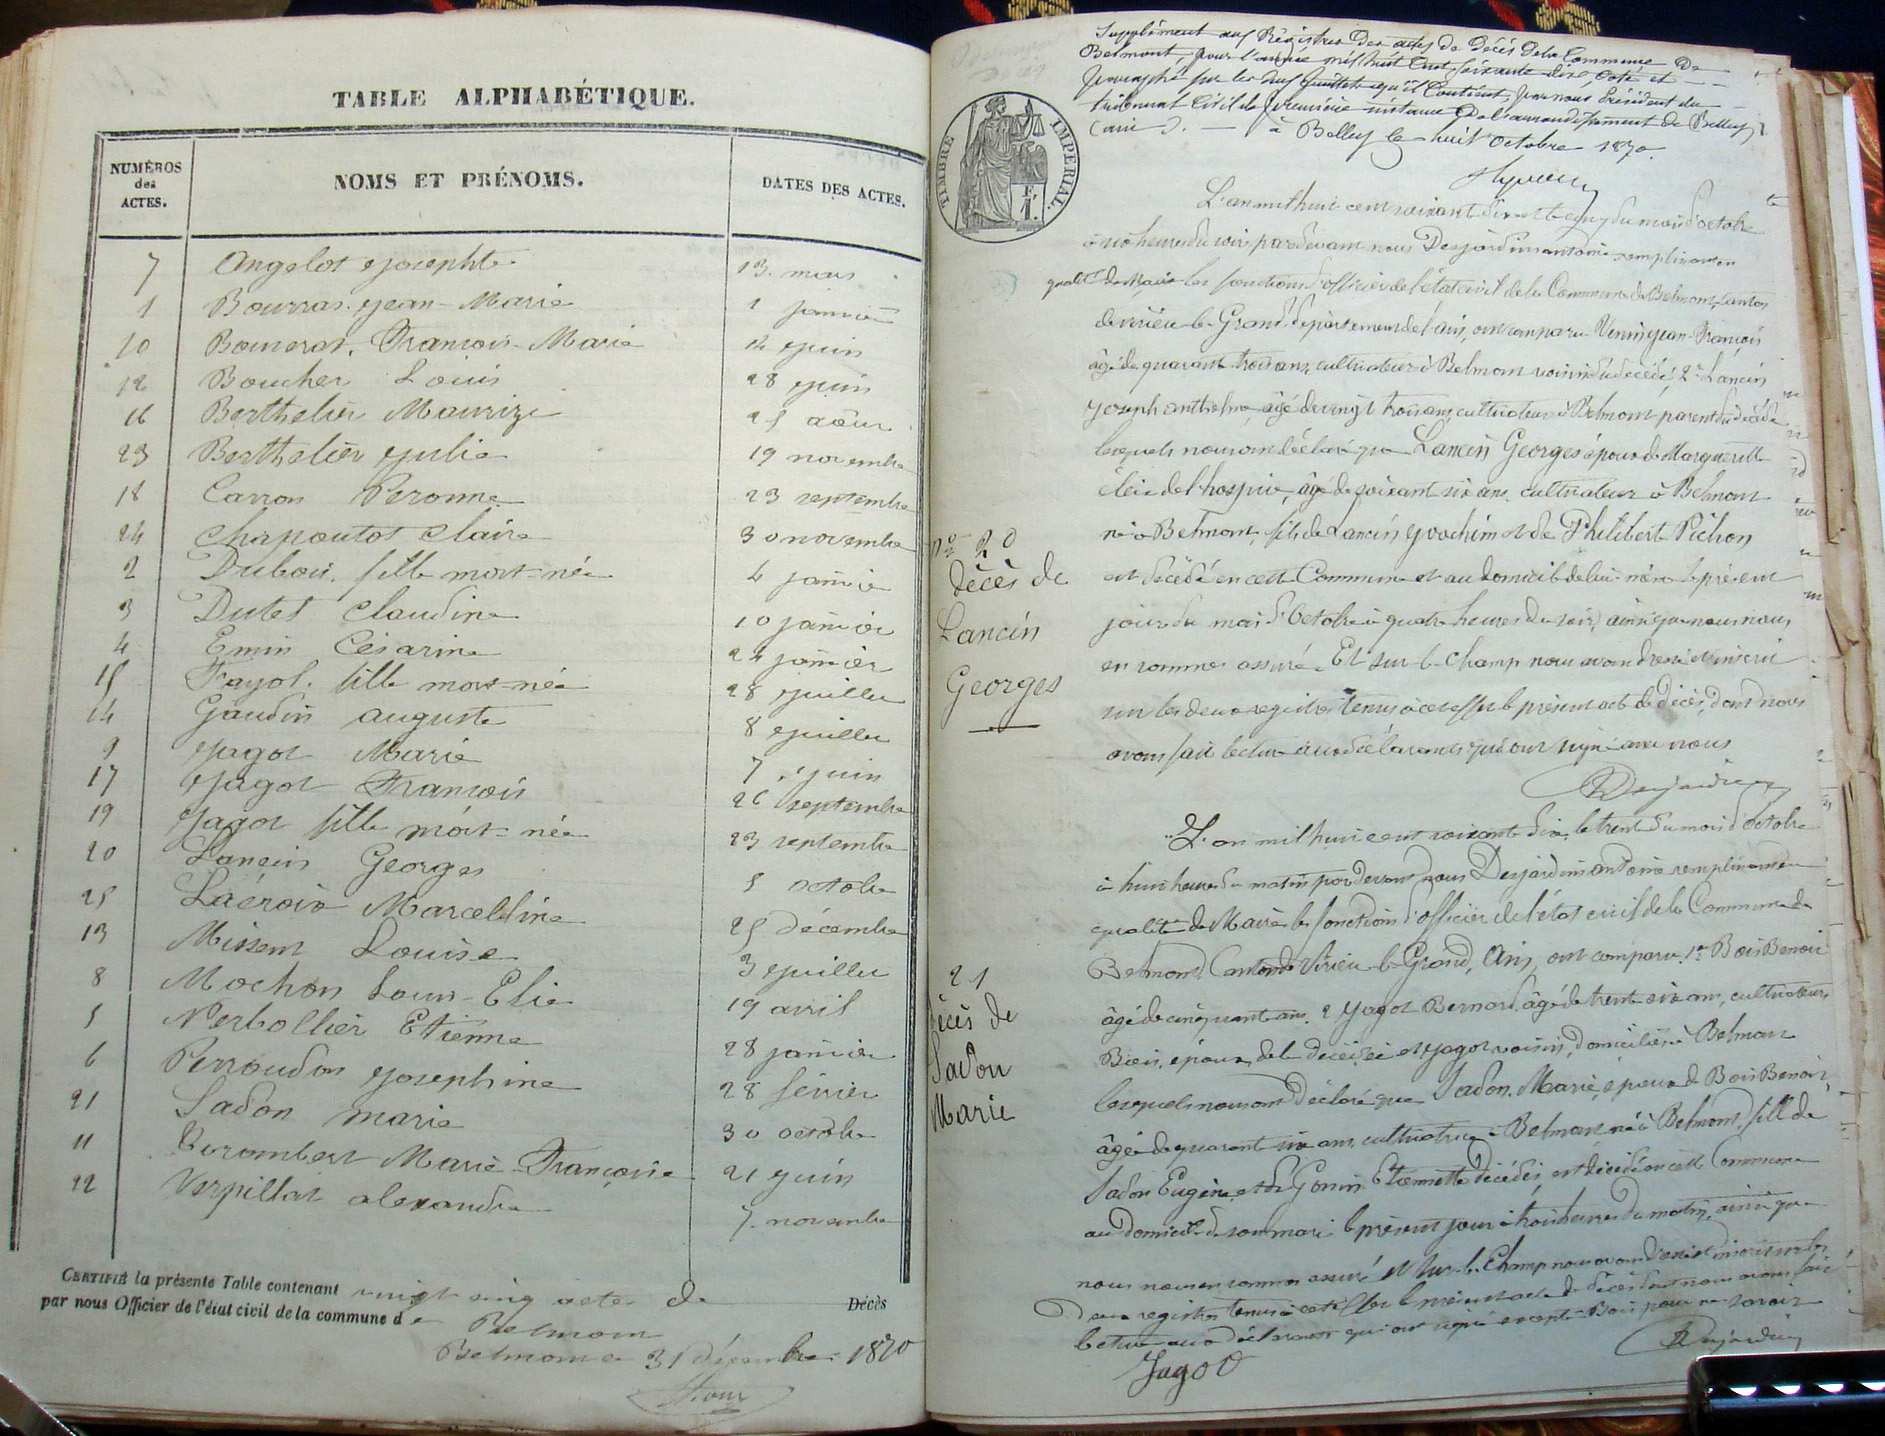 TABLE ALPHABÉTIQUE.
NUMÉROS des ACTES.
NOMS ET PRÉNOMS.
DATES DES ACTES.
7 Angelot Josephte 13 mars
1 Bourras Jean-Marie 1 janvier
10 François-Marie 12 juin
12 Boucher Louis 28 juin
16 Berthelier Maurize 25 août
23 Berthelier Julie 19 novembre
18 Carron Peronne 23 septembre
24 Chapoutot Claire 30 novembre
2 Dubois, fille mort-née 4 janvier
3 Dutet Claudine 10 janvier
4 Emin Césarine 24 janvier
15 Fayol, fille mort-née 28 juillet
14 Gaudin Auguste 8 juillet
9 Jagot Marie 7 juin
17 Jagot François 26 septembre
19 Jagot fille mort-née 23 septembre
20 Lancin Georges 5 octobre
25 Lacroix Marcelline 25 décembre
13 Louise 3 juillet
8 Mochon Louis-Elie 19 avril
5 Nerbollier Etienne 28 janvier
6 Perroudon Josephine 28 février
21 Sadon marie 30 octobre
11 Marie Françoise 21 juin
22 Verpillat alexandre 7 novembre
CERTIFIÉ la présente Table contenant vingt cinq actes de Décès
par nous Officier de l'état civil de la commune de Belmont
Belmont le 31 décembre 1870
Supplément aux Régistres des actes de Décès de la Commune de
Belmont, pour l'année mil huit cent soixante dix, coté et
paraphé sur les feuillets qu'il contient, par nous Président du
tribunal civil de première instance de l'arrondissement de Belley
(ain). — à Belley le huit octobre 1870.
TIMBRE IMPÉRIAL.
F. 1.
L'an mil huit cent soixante dix et le cinq du mois d'octobre
à six heures du soir pardevant nous Desjardins antoine remplissant en
qualité de Maire les fonctions d'officier de l'état civil de la Commune de Belmont, canton
de virieu-le-Grand, département de l'ain, ont comparu Jean François
âgé de quarante trois ans, cultivateur à Belmont voisin du décédé, 2° Lancin
Joseph anthelme, âgé de vingt trois ans, cultivateur à Belmont parent du décédé
lesquels nous ont déclaré que Lancin Georges époux de Marguerite
élève de l'hospice, âgé de soixante six ans, cultivateur à Belmont
né à Belmont, fils de Lancin Joachim et de Philibert Pichon
est décédé en cette Commune et au domicile de lui même le présent
jour du mois d'Octobre à quatre heures du soir, ainsi que nous nous
en sommes assuré. Et sur le champ nous avons dressé et inscrit
sur les deux registres tenus à cet effet le présent acte de décès, dont nous
avons fait lecture aux déclarants qui ont signé avec nous
Desjardins
N° 20
décès de
Lancin
Georges
L'an mil huit cent soixante dix, le trente du mois d'octobre
à huit heures du matin par devant nous Desjardins antoine remplissant en
qualité de Maire les fonctions d'officier de l'état civil de la Commune de
Belmont Canton de Virieu-le-Grand, Ain, ont comparu 1° Bois Benoit
âgé de cinquante ans, 2 Jagot Bernard, âgé de trente six ans, cultivateurs
Bois, époux de la décédée et Jagot voisin, domiciliés à Belmont
lesquels nous ont déclaré que Sadon Marie, épouse de Bois Benoit,
âgée de quarante six ans, cultivatrice à Belmont née à Belmont, fille de
Sadon Eugène, et de Gonin Etiennette décédés, est décédée en cette Commune
au domicile de son mari le présent jour à trois heures du matin, ainsi que
nous nous en sommes assuré et sur le Champ nous avons dressé et inscrit sur les
deux registres tenus à cet effet le présent acte de décès dont nous avons fait
lecture aux déclarants qui ont signé excepté Bois pour ne savoir
Jagot
Desjardins
21
décès de
Sadon
Marie